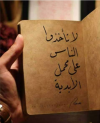 لا تأخذوا
الناس
على محمل
الأبدية